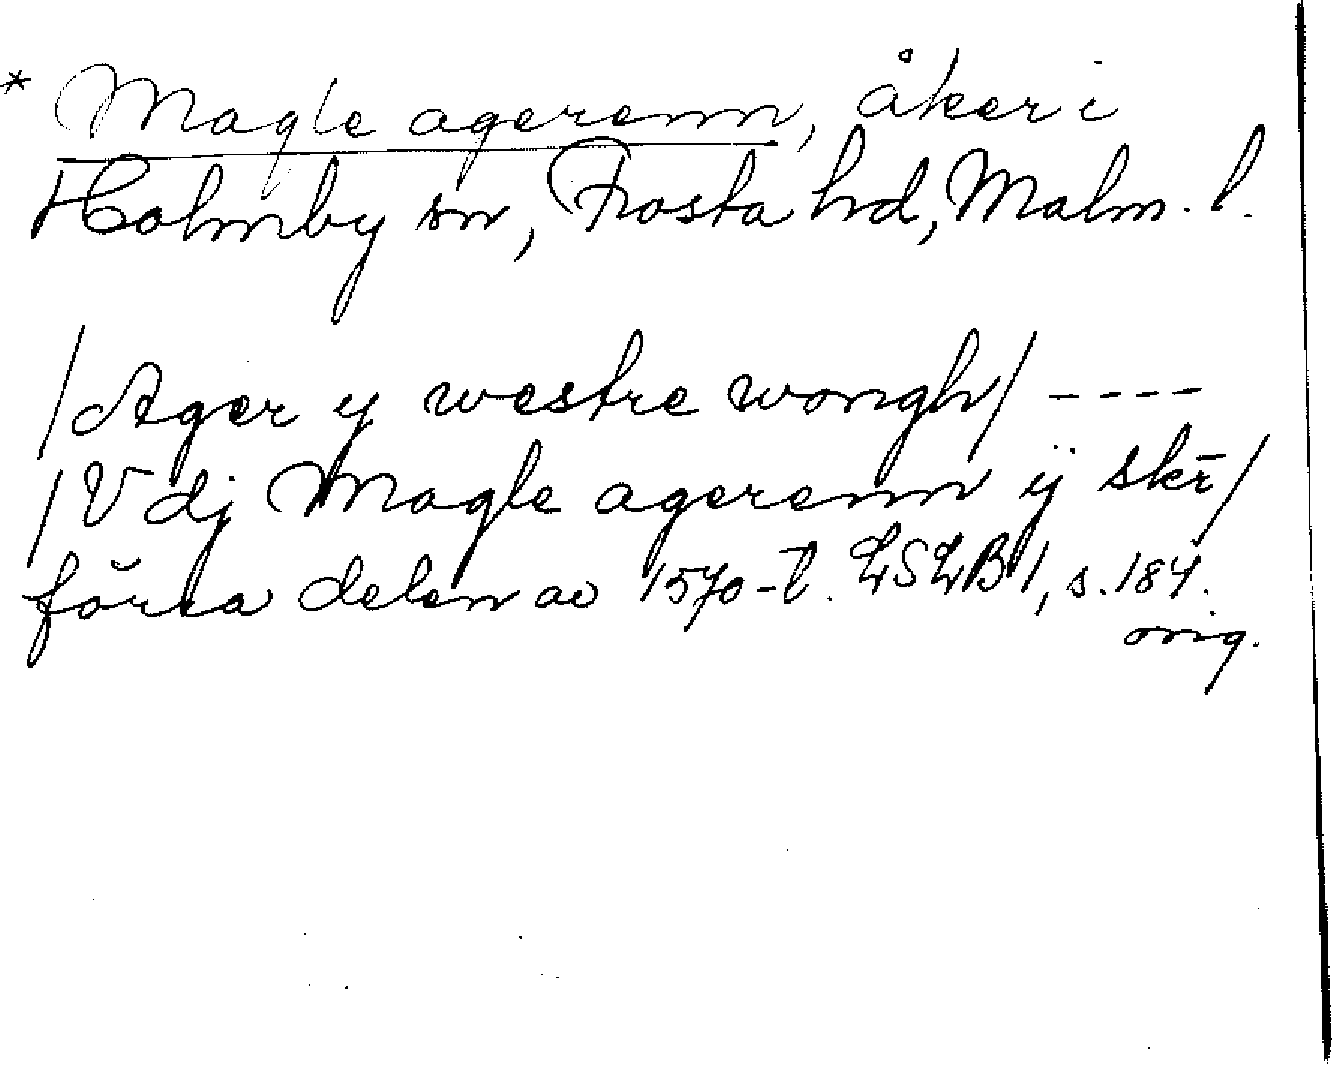 * Magle agerenn, åker i
Holmby sn, Frosta hd, Malm. l.
/Ager y westre wongh/ ----
/V dj Magle agerenn ij skr̄/
förra delen av 1570-t. LSLB 1, s. 184.
orig.